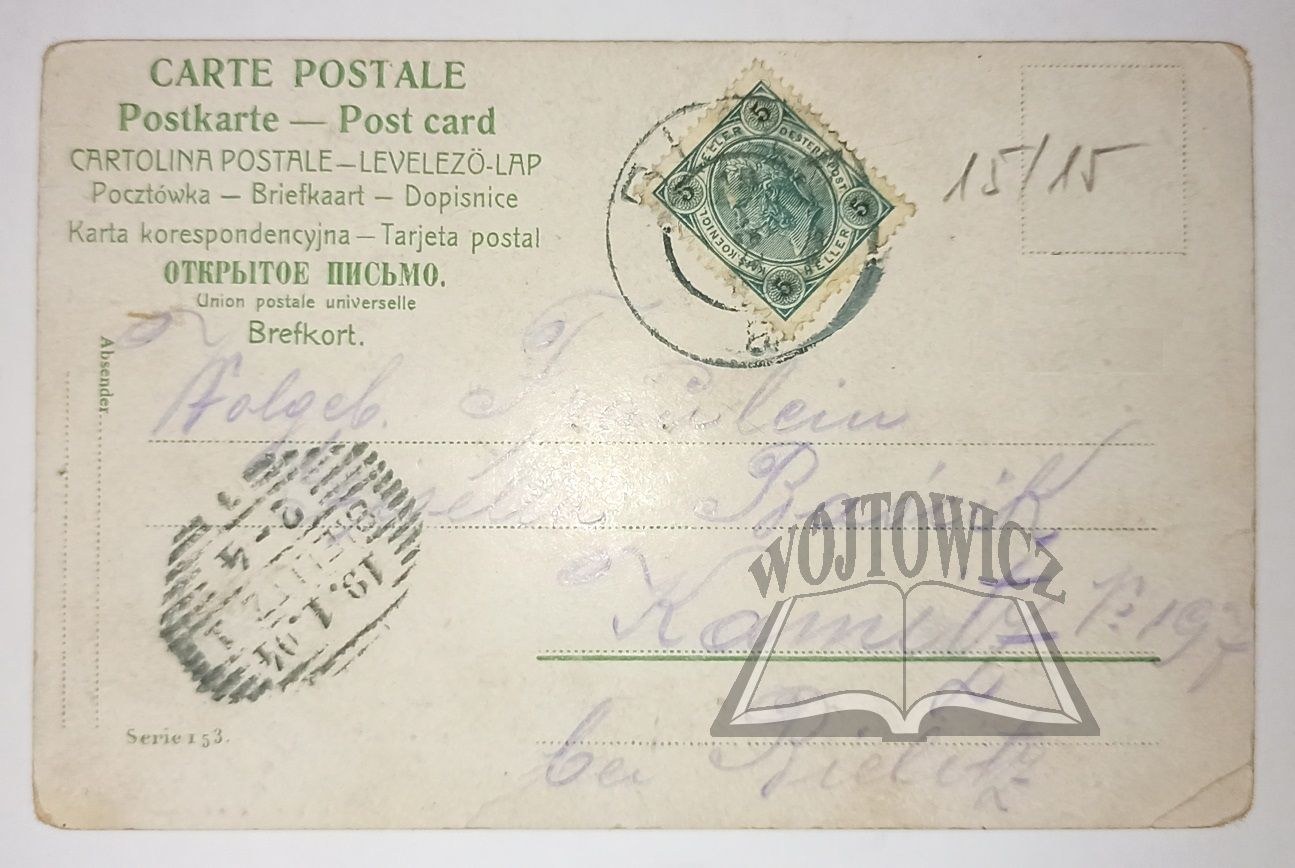 CARTE POSTALE
Postkarte — Post card
CARTOLINA POSTALE — LEVELEZÖ-LAP
Pocztówka — Briefkaart — Dopisnice
Karta korespondencyjna — Tarjeta postal
ОТКРЫТОЕ ПИСЬМО.
Union postale universelle
Brefkort.
Absender.
5 HELLER OESTERR. POST. 5 HELLER
5 KAIS. KOENIGL. 5
15/15
Fräulein
Kamitz № 197
bei Bielitz
13.1.04
Serie 153.
WÓJTOWICZ